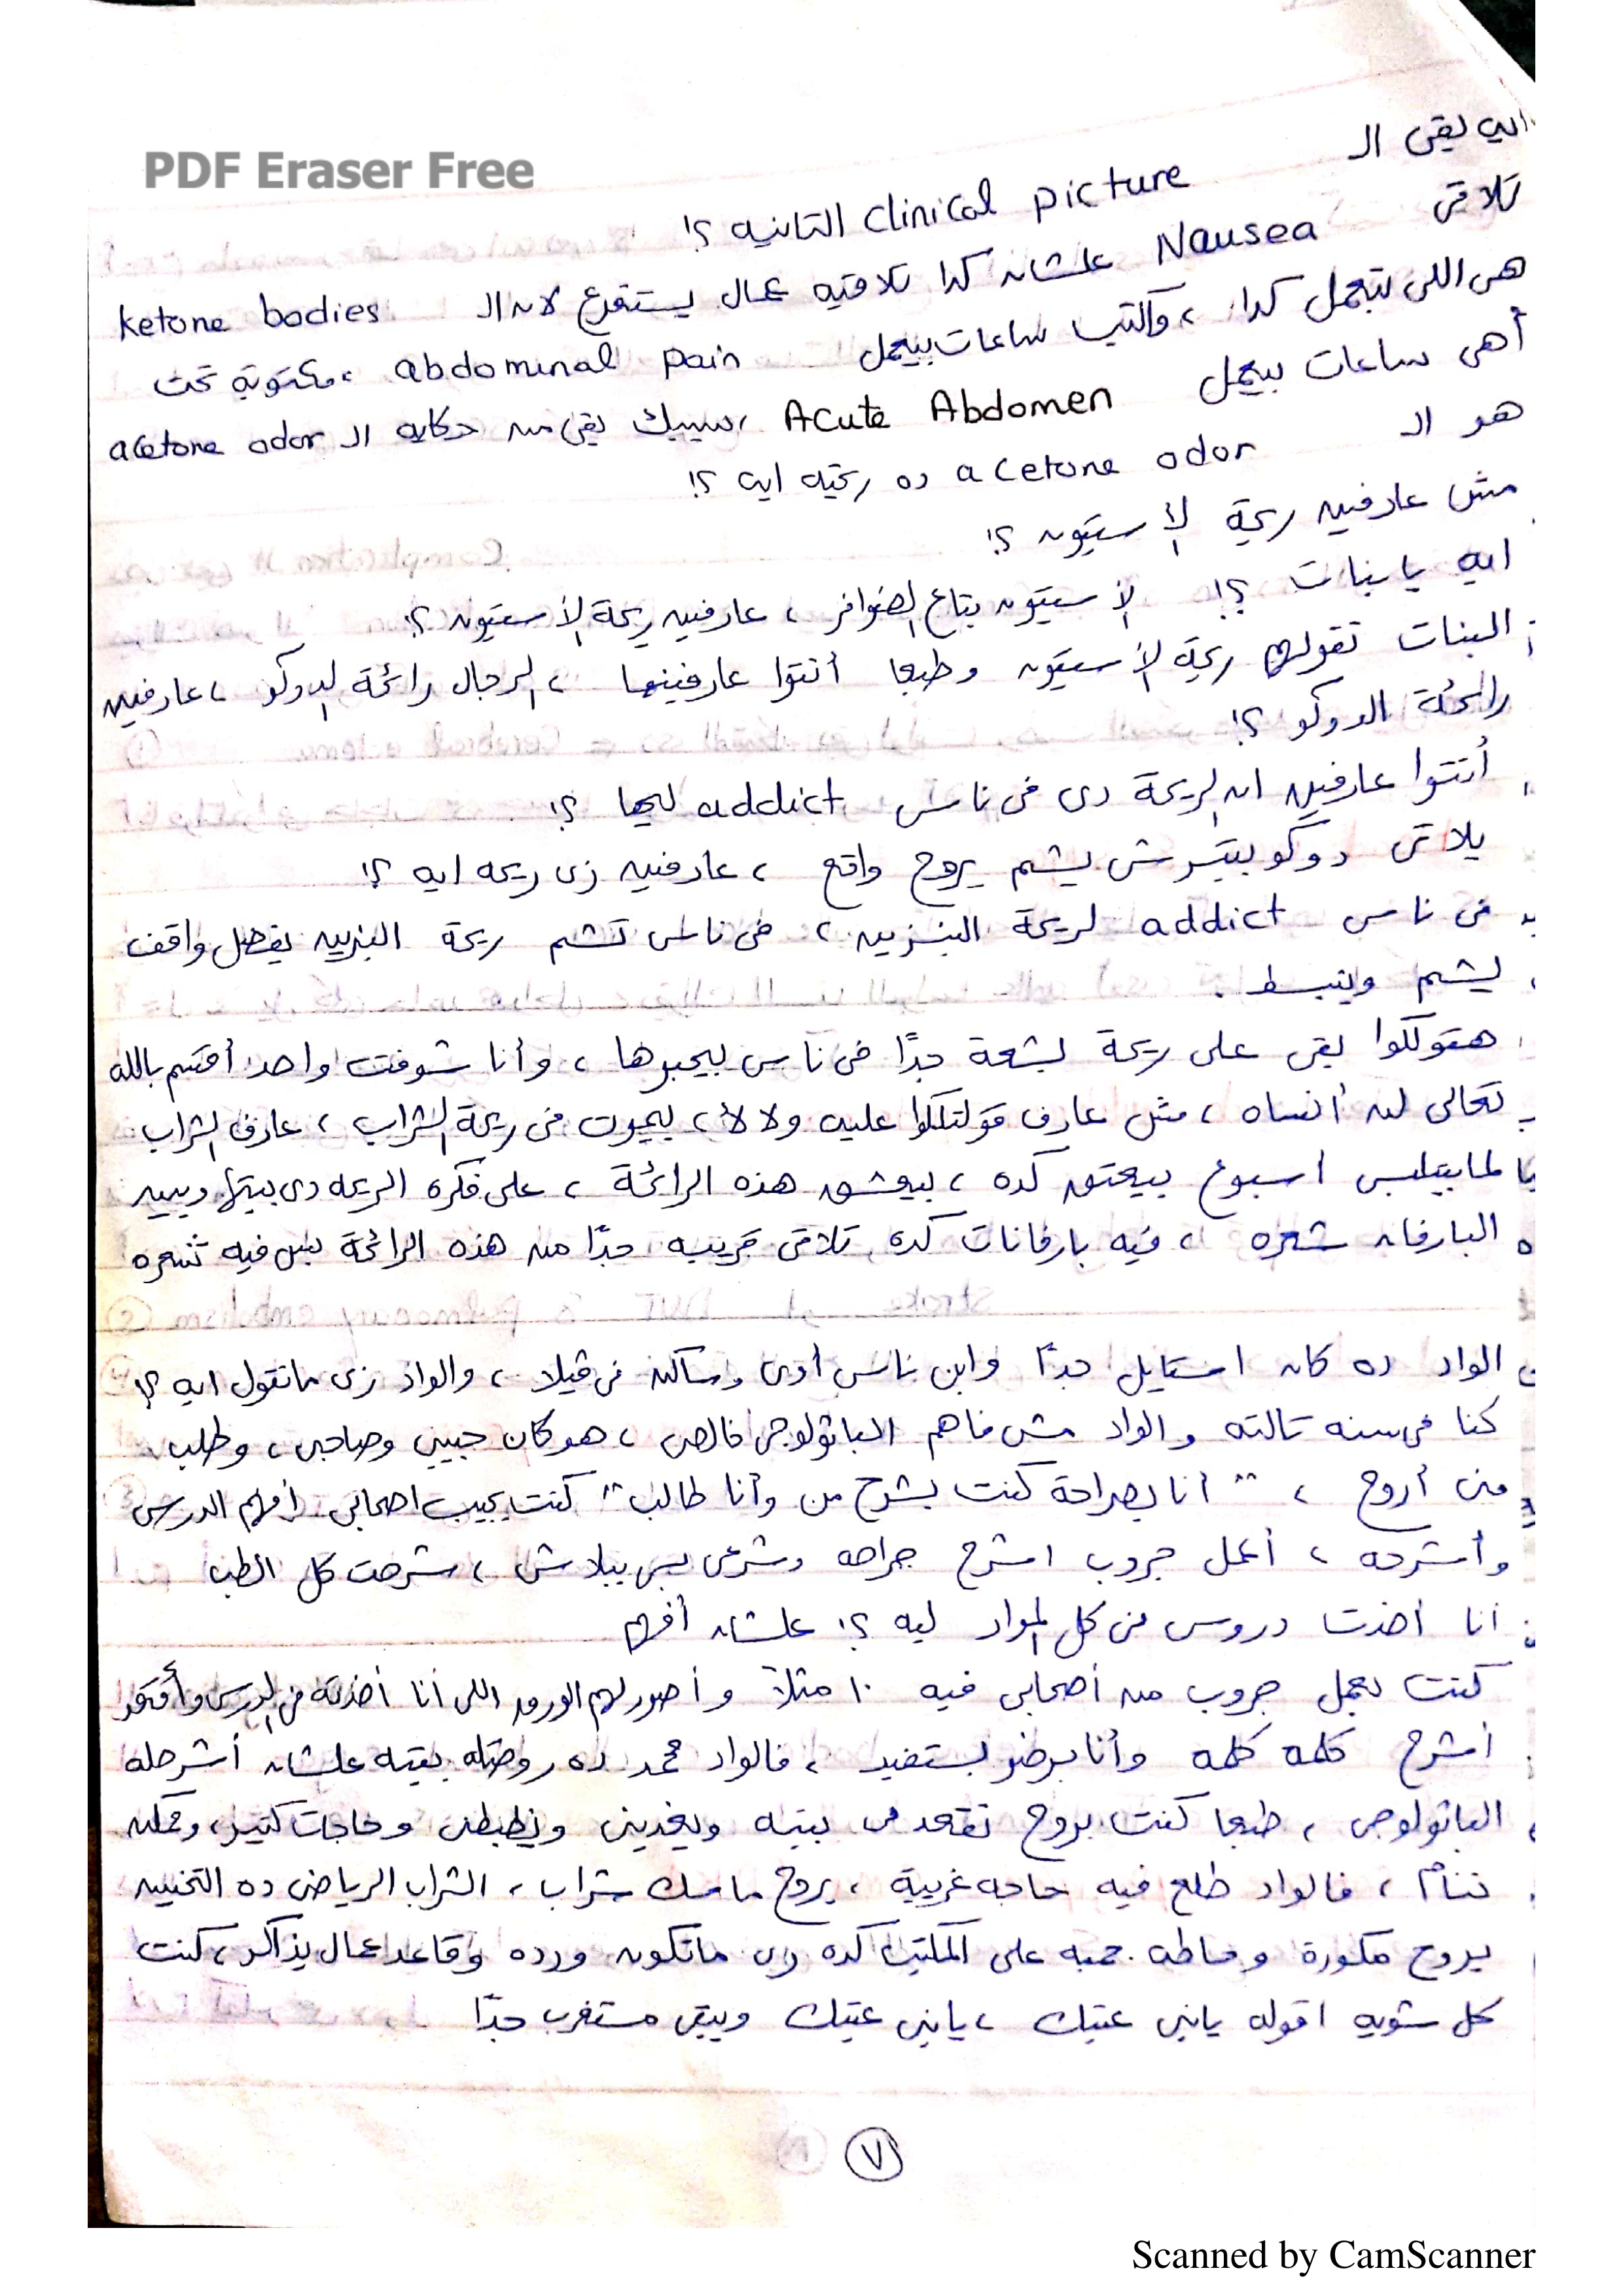 PDF Eraser Free
ايه بقى الـ clinical picture التانيه ؟!
تلاقى Nausea علشان كدا تلاقيه عمال يستفرغ لان الـ ketone bodies
هى اللى بتعمل كدا ، والكتب ساعات بيعمل abdominal pain ، مكتوبة تحت
أهى ساعات بيعمل Acute Abdomen ، سيبك بقى من حكاية الـ acetone odor
هو الـ acetone odor ده ريحته ايه ؟!
مش عارفين ريحة الأسيتون ؟!
ايه يا بنات ؟! الأسيتون بتاع الضوافر ، عارفين ريحة الأسيتون ؟!
البنات تقولهم ريحة الأسيتون وطبعا أنتوا عارفينها ، الرجال رائحة الدوكو ، عارفين
رائحة الدوكو ؟!
أنتوا عارفين ان الريحة دى فى ناس addict ليها ؟!
يلاقى دوكو بيترش يشم يروح واقع ، عارفين زى ريحه ايه ؟!
فى ناس addict لريحة البنزين ، فى ناس تشم ريحة البنزين يفضل واقف
يشم وينبسط .
هقولكوا بقى على ريحة بشعة جدًا فى ناس بيحبوها ، وأنا شوفت واحد أقسم بالله
تعالى لن أنساه ، مش عارف قولتلكوا عليه ولا لأ ، بيموت فى ريحة الشراب ، عارف الشراب
لما بيتلبس أسبوع بيعتق كده ، بيعشق هذه الرائحة ، على فكره الريحه دى بينها وبين
البارفان شعره ، فيه بارفانات كده تلاقى قريبه جدًا من هذه الرائحة بس فيه شعره
الواد ده كان استايل جدًا وابن ناس أوى وساكن فى فيلا ، والواد زى ماتقول ايه ؟!
كنا فى سنه تالته والواد مش فاهم الباثولوجى خالص ، هو كان حبيبى وصاحبى ، وطلب
منى أروح ، " أنا بصراحة كنت بشرح من وأنا طالب " كنت بجيب اصحابى أفهم الدرس
وأشرحه ، أعمل جروب اشرح جراحه وشرعى بس ببلاش ، شرحت كل الطب
أنا أخدت دروس فى كل المواد ليه ؟! علشان أفهم
كنت بعمل جروب من أصحابى فيه ١٠ مثلاً وأصور لهم الورق اللى أنا أخدته فى الدرس وأقعد
أشرح كلمه كلمه وأنا برضو بستفيد ، فالواد محمد ده روحتله بيته علشان أشرحله
الباثولوجى ، طبعا كنت بروح نقعد فى بيته ويغدينى ويظبطنى وحاجات كتير ، وممكن
ننام ، فالواد طلع فيه حاجه غريبة ، يروح ماسك شراب ، الشراب الرياضى ده التخين
يروح مكورة وحاطه جمبه على المكتب كده زى ماتكون ورده وقاعد عمال يذاكر ، كنت
كل شويه اقوله يابنى عنيك ، يابنى عنيك ويبقى مستغرب جدًا
٧
Scanned by CamScanner